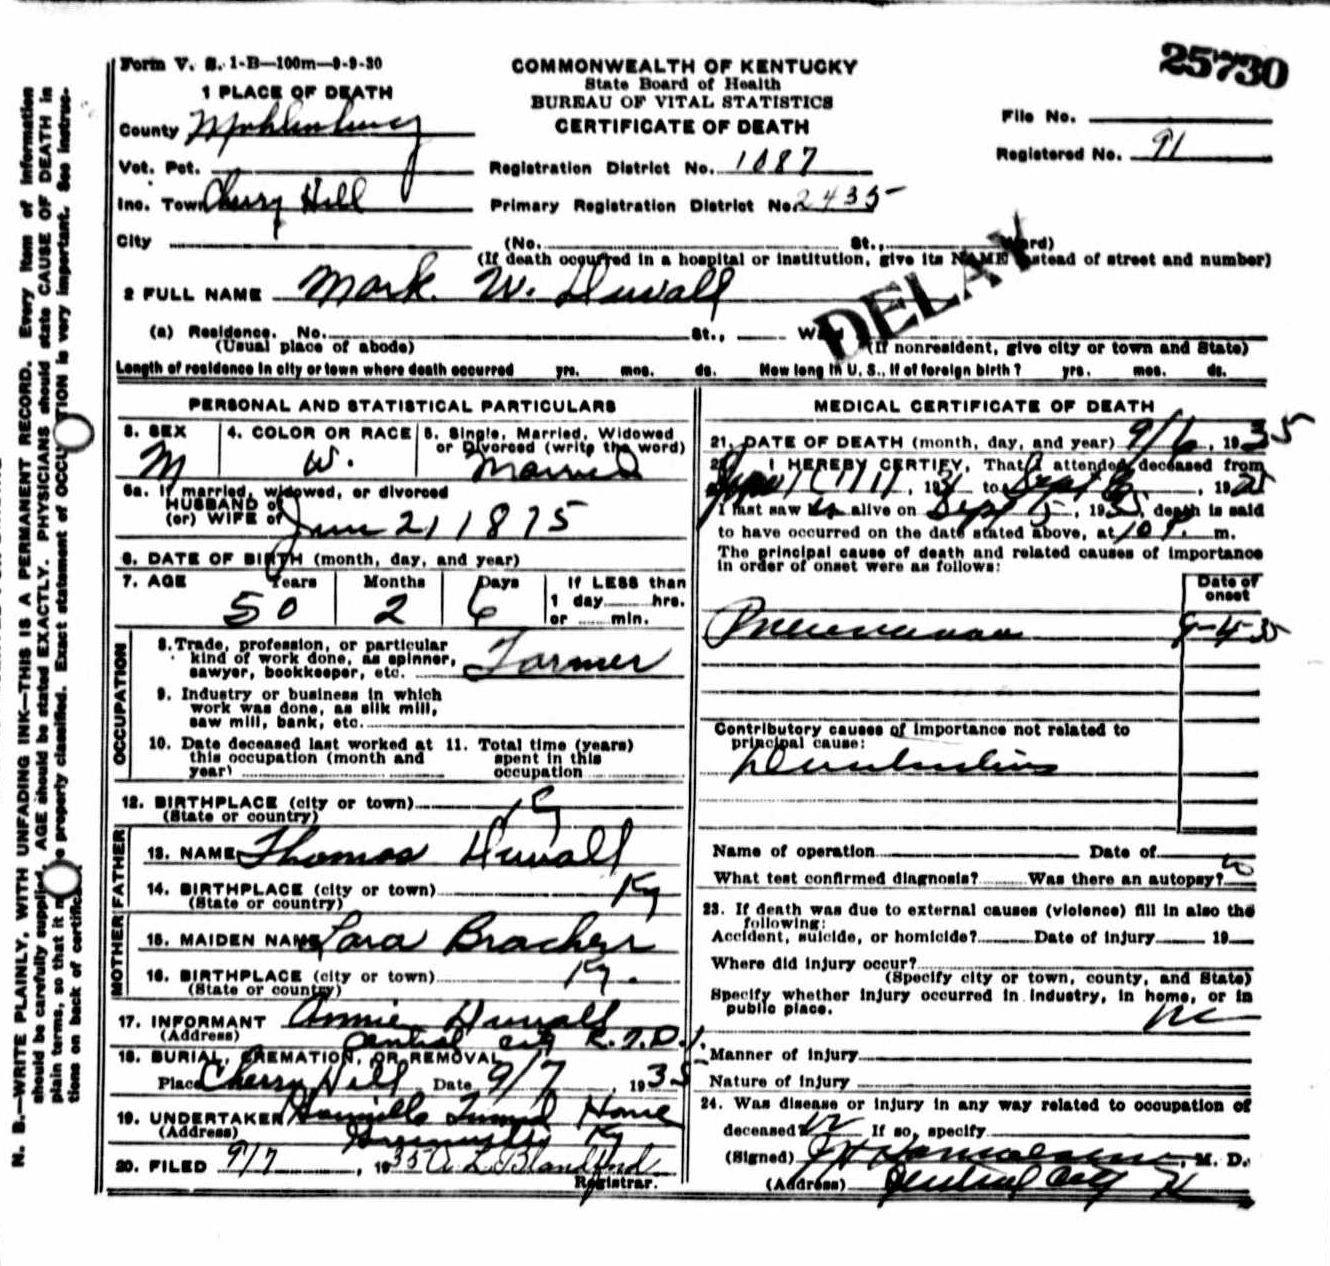 25730
Form V. S. 1-B—100m—9-9-30
COMMONWEALTH OF KENTUCKY
State Board of Health
BUREAU OF VITAL STATISTICS
CERTIFICATE OF DEATH
File No.
Registered No. 91
1 PLACE OF DEATH
County Muhlenburg
Vot. Pct.
Registration District No. 1087
Inc. Town Cherry Hill
Primary Registration District No. 2435
City (No. St., Ward)
(If death occurred in a hospital or institution, give its NAME instead of street and number)
DELAY
2 FULL NAME Mark W. Duvall
(a) Residence. No. St., W
(Usual place of abode) (If nonresident, give city or town and State)
Length of residence in city or town where death occurred yrs. mos. ds. How long in U. S., if of foreign birth? yrs. mos. ds.
PERSONAL AND STATISTICAL PARTICULARS
3. SEX 4. COLOR OR RACE 5. Single, Married, Widowed
or Divorced (write the word)
M W. Married
5a. If married, widowed, or divorced
HUSBAND of
(or) WIFE of June 21 1875
6. DATE OF BIRTH (month, day, and year)
7. AGE Years Months Days If LESS than
1 day hrs.
50 2 6 or min.
OCCUPATION
8. Trade, profession, or particular
kind of work done, as spinner,
sawyer, bookkeeper, etc. Farmer
9. Industry or business in which
work was done, as silk mill,
saw mill, bank, etc.
10. Date deceased last worked at 11. Total time (years)
this occupation (month and spent in this
year) occupation
12. BIRTHPLACE (city or town)
(State or country) Ky
FATHER
13. NAME Thomas Duvall
14. BIRTHPLACE (city or town) Ky
(State or country)
MOTHER
15. MAIDEN NAME Lara
16. BIRTHPLACE (city or town) Ky.
(State or country)
17. INFORMANT Annie Duvall
(Address) Central City R.F.D. 1.
18. BURIAL, CREMATION, OR REMOVAL
Place Cherry Hill Date 9/7, 1935
19. UNDERTAKER Funeral Home
(Address) Greenville Ky
20. FILED 9/7, 1935 A L Blandford
Registrar.
MEDICAL CERTIFICATE OF DEATH
21. DATE OF DEATH (month, day, and year) 9/6, 1935
22. I HEREBY CERTIFY, That I attended deceased from
, 19 to Sept 6, 1935
I last saw alive on Sept 5, 1935, death is said
to have occurred on the date stated above, at 10 P. m.
The principal cause of death and related causes of importance
in order of onset were as follows:
Date of
onset
Pneumonia 9-4-35
Contributory causes of importance not related to
principal cause:
Name of operation Date of
What test confirmed diagnosis? Was there an autopsy?
23. If death was due to external causes (violence) fill in also the
following:
Accident, suicide, or homicide? Date of injury 19
Where did injury occur?
(Specify city or town, county, and State)
Specify whether injury occurred in industry, in home, or in
public place. no
Manner of injury
Nature of injury
24. Was disease or injury in any way related to occupation of
deceased? If so, specify
(Signed) , M. D.
(Address) Central City K
N. B.—WRITE PLAINLY, WITH UNFADING INK—THIS IS A PERMANENT RECORD. Every item of information
should be carefully supplied. AGE should be stated EXACTLY. PHYSICIANS should state CAUSE OF DEATH in
plain terms, so that it may be properly classified. Exact statement of OCCUPATION is very important. See instruc-
tions on back of certificate.